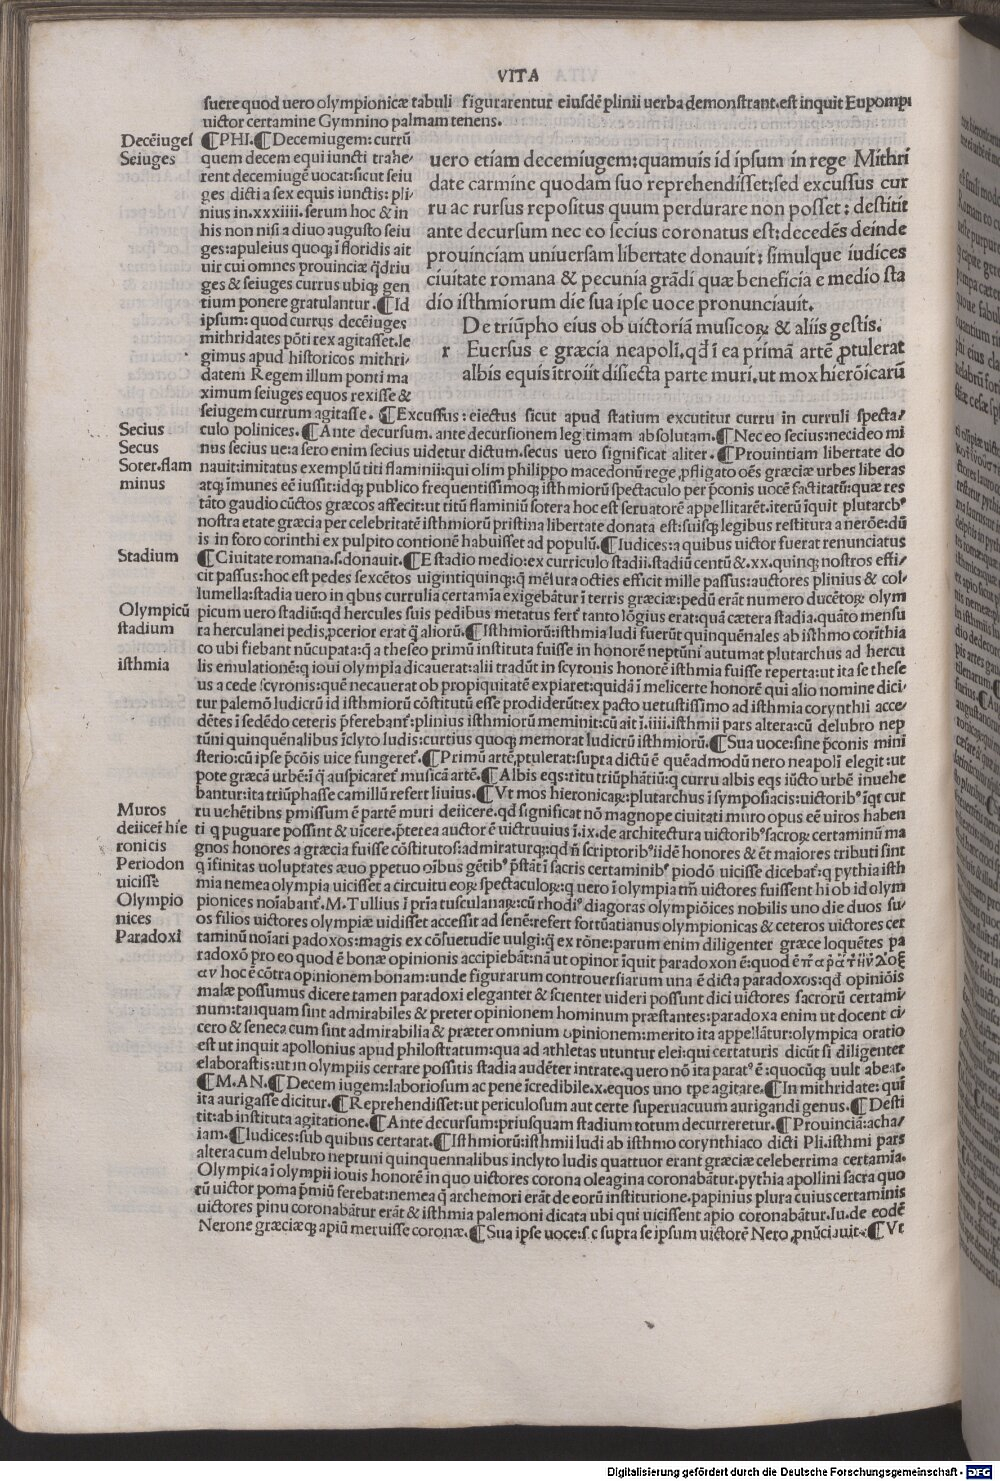 VITA
fuere quod uero olympionicæ tabuli figurarentur eiusdē plinii uerba demonstrant.est inquit Eupompi
uictor certamine Gymnino palmam tenens.
Decēiuges
Seiuges
¶PHI.¶Decemiugem: currū
quem decem equi iuncti trahe⸗
rent decemiugē uocat:sicut seiu
ges dicti a sex equis iunctis: pli⸗
nius in.xxxiiii.serum hoc & in
his non nisi a diuo augusto seiu
ges:apuleius quoqꝫ ī floridis ait
uir cui omnes prouinciæ q̄driu
ges & seiuges currus ubiqꝫ gen
tium ponere gratulantur.¶Id
ipsum: quod currus decēiuges
mithridates pōti rex agitasset.le
gimus apud historicos mithri⸗
datem Regem illum ponti ma
ximum seiuges equos rexisse &
seiugem currum agitasse.
uero etiam decemiugem:quamuis id ipsum in rege Mithri
date carmine quodam suo reprehendisset:sed excussus cur
ru ac rursus repositus quum perdurare non posset: destitit
ante decursum nec eo secius coronatus est:decedēs deinde
prouinciam uniuersam libertate donauit: simulque iudices
ciuitate romana & pecunia grādi quæ beneficia e medio sta
dio isthmiorum die sua ipse uoce pronunciauit.
De triūpho eius ob uictoriā musicoꝝ & aliis gestis.
r Euersus e græcia neapoli.qđ ī ea primā artē ꝓtulerat
albis equis ītroiit disiecta parte muri.ut mox hierōicarū
¶Excussus: eiectus sicut apud statium excutitur curru in curruli specta⸗
Secius
Secus
Soter.flam
minus
culo polinices.¶Ante decursum. ante decursionem legitimam absolutam.¶Nec eo secius:necideo mi
nus secius ue:a sero enim secius uidetur dictum.secus uero significat aliter.¶Prouintiam libertate do
nauit:imitatus exemplū titi flaminii:qui olim philippo macedonū rege,ꝓfligato oēs græciæ urbes liberas
atqꝫ īmunes eē iussit:idqꝫ publico frequentissimoqꝫ isthmiorū spectaculo per ꝑconis uocē factitatū:quæ res
tāto gaudio cūctos græcos affecit:ut titū flaminiū sotera hoc est seruatorē appellitarēt.iterū īquit plutarchꝰ
nostra etate græcia per celebritatē isthmiorū pristina libertate donata est:suisqꝫ legibus restituta a nerōe:dū
is in foro corinthi ex pulpito contionē habuisset ad populū.¶Iudices:a quibus uictor fuerat renunciatus
Stadium
¶Ciuitate romana.s.donauit.¶E stadio medio:ex curriculo stadii.stadiū centū &.xx.quinqꝫ nostros effi⸗
cit passus:hoc est pedes sexcētos uigintiquinqꝫ:q̄ mēsura octies efficit mille passus:auctores plinius & col⸗
lumella:stadia uero in qbus currulia certamīa exigebātur ī terris græciæ:pedū erāt numero ducētoꝝ olym
Olympicū
stadium
picum uero stadiū:qđ hercules suis pedibus metatus ferť tanto lōgius erat:quā cætera stadia.quāto mensu
ra herculanei pedis,ꝓcerior erat q̄ aliorū.¶Isthmiorū:isthmia ludi fuerūt quinquēnales ab isthmo corīthia
co ubi fiebant nūcupata:q̄ a theseo primū instituta fuisse in honorē neptūni autumat plutarchus ad hercu
isthmia
lis emulationē:q ioui olympia dicauerat:alii tradūt in scyronis honorē isthmia fuisse reperta:ut ita se these
us a cede scyronis:quē necauerat ob propiquitatē expiaret:quidā ī melicerte honorē qui alio nomine dici⸗
tur palemō ludicrū id isthmiorū cōstitutū esse prodiderūt:ex pacto uetustissimo ad isthmia corynthii acce⸗
dētes ī sedēdo ceteris p̄ferebanť:plinius isthmiorū meminit:cū ait ī.iiii.isthmii pars altera:cū delubro nep
tūni quinquēnalibus īclyto ludis:curtius quoqꝫ memorat ludicrū isthmiorū.¶Sua uoce:sine p̄conis mini
sterio:cū ipse p̄cōis uice fungereť.¶Primū artē,ꝓtulerat:supra dictū ē quēadmodū nero neapolī elegit:ut
pote græcā urbē:ī q̄ auspicareť musicā artē.¶Albis eqs:ritu triūphātiū:q curru albis eqs iūcto urbē inuehe
bantur:ita triūphasse camillū refert liuius.¶Vt mos hieronicaꝝ:plutarchus ī symposiacis:uictoribꝰ īqt cur
Muros
deiicerī hie
ronicis
Periodon
uicissē
Olympio
nices
Paradoxī
ru uehētibus p̄missum ē partē muri deiicere.qđ significat nō magnope ciuitati muro opus eē uiros haben
ti q puguare possint & uīcere.p̄terea auctor ē uictruuius ī.ix.de architectura uictoribꝰ sacroꝝ certaminū ma
gnos honores a græcia fuisse cōstitutos:admiraturqꝫ:qđ n̄ scriptoribꝰ iidē honores & ēt maiores tributi sint
q īfinitas uoluptates æuo ppetuo oībus gētibꝰ p̄stāt ī sacris certaminibꝰ piodō uicisse dicebať:q pythia isth
mia nemea olympia uicisset a circuitu eoꝝ spectaculoꝝ:q uero ī olympia tm̄ uictores fuissent hi ob id olym
pionices noīabanť.M.Tullius ī prīa tusculanaꝝ:cū rhodiꝰ diagoras olympiōices nobilis uno die duos su⸗
os filios uictores olympiæ uidisset accessit ad senē:refert fortūatianus olympionicas & ceteros uictores cer
taminū noīari padoxos:magis ex cōsuetudīe uulgi:q̄ ex rōne:parum enim diligenter græce loquētes pa
radoxō pro eo quod ē bonæ opinionis accipiebāt:nā ut opinor īquit paradoxon ē:quod ē παρὰ τὴν δόξ
αν hoc ē cōtra opinionem bonam:unde figurarum controuersiarum una ē dicta paradoxos:qđ opiniōis
malæ possumus dicere tamen paradoxi eleganter & scienter uideri possunt dici uictores sacrorū certami⸗
num:tanquam sint admirabiles & preter opinionem hominum præstantes:paradoxa enim ut docent ci⸗
cero & seneca cum sint admirabilia & præter omnium opinionem:merito ita appellātur:olympica oratio
est ut inquit apollonius apud philostratum:qua ad athletas utuntur elei:qui certaturis dicūt si diligenter
elaborastis:ut in olympiis certare possitis stadia audēter intrate.q uero nō ita paratꝰ ē:quocūqꝫ uult abeat.
¶M.AN.¶Decem iugem:laboriosum ac pene īcredibile.x.equos uno tpe agitare.¶In mithridate: qui
ita aurigasse dicitur.¶Reprehendisset:ut periculosum aut certe superuacuum aurigandi genus.¶Desti
tit:ab instituta agitatione.¶Ante decursum:priusquam stadium totum decurreretur.¶Prouinciā:acha⸗
iam.¶Iudices:sub quibus certarat.¶Isthmiorū:isthmii ludi ab isthmo corynthiaco dicti Pli.isthmi pars
altera cum delubro neptuni quinquennalibus inclyto ludis quattuor erant græciæ celeberrima certamīa.
Olympica ī olympii iouis honorē in quo uictores corona oleagina coronabātur.pythia apollini sacra quo
rū uictor poma p̄miū ferebat:nemea q̄ archemori erāt de eorū institutione.papinius plura cuius certaminis
uictores pinu coronabātur erāt & isthmia palemoni dicata ubi qui uicissent apio coronabātur.Iu.de eodē
Nerone græciæqꝫ apiū meruisse coronæ.¶Sua ipse uoce:s c supra se ipsum uictorē Nero,ꝓnūciauit.¶Vt
Digitalisierung gefördert durch die Deutsche Forschungsgemeinschaft - DFG